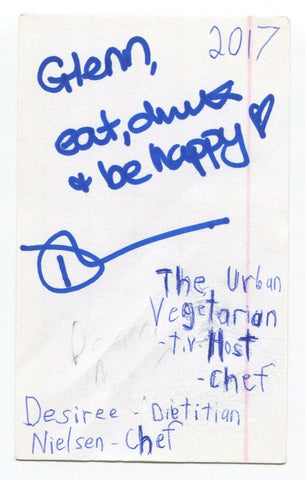 2017
Glenn,
eat, drink
& be happy ♡
The Urban
Vegetarian
- t.v. Host
- Chef
Desiree - Dietitian
Nielsen - Chef